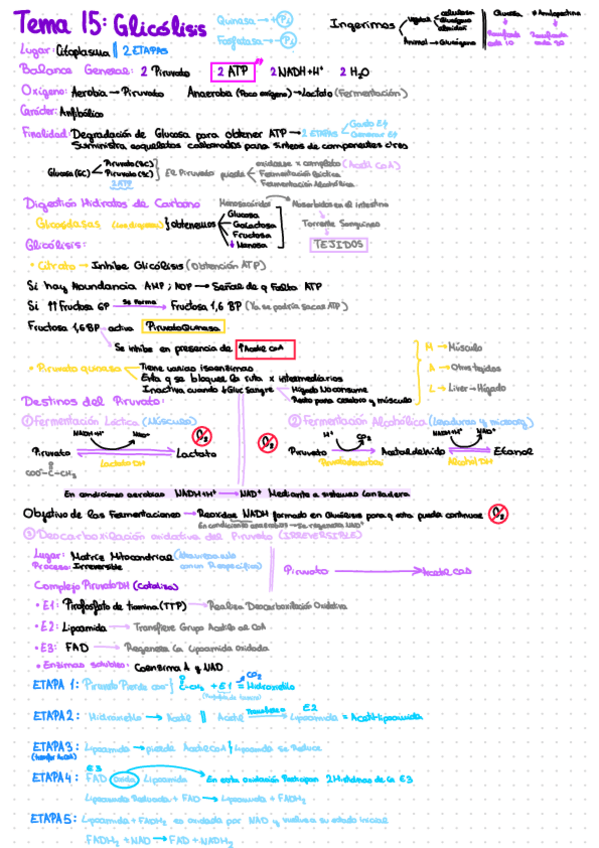 Tema 15: Glicólisis
Quinasa → +Pi
Fosfatasa → -Pi
Ingerimos
Vegetal
celulosa
Glucógeno
almidón
Animal → Glucógeno
Amilopectina
Lugar: Citoplasma || 2 ETAPAS
Balance General: 2 Piruvato 2 ATP 2 NADH+H⁺ 2 H₂O
Oxígeno: Aerobia → Piruvato Anaerobia (Poco oxígeno) → Lactato (Fermentación)
Carácter: Anfibólico
Finalidad: Degradación de Glucosa para obtener ATP → 2 ETAPAS
Suministra esqueletos carbonados para síntesis de componentes
Glucosa (6C)
Piruvato (3C)
Piruvato (3C)
2 ATP
El Piruvato puede
oxidarse x completo (Acetil CoA)
Fermentación láctica
Fermentación Alcohólica
Digestión Hidratos de Carbono
Monosacáridos
Absorbidos en el intestino
Glucosidasas
obtenemos
Glucosa
Galactosa
Fructosa
Manosa
Torrente Sanguíneo
TEJIDOS
Glicólisis:
• Citrato → Inhibe Glicólisis (Obtención ATP)
Si hay Abundancia AMP; ADP → Señal de q Falta ATP
Si ↑↑ Fructosa 6P Se forma Fructosa 1,6 BP (Ya se podría sacar ATP)
Fructosa 1,6 BP activa Piruvato Quinasa
Se inhibe en presencia de ↑Acetil CoA
• Piruvato quinasa
Tiene varias isoenzimas
Evita q se bloquee la ruta x intermediarios
Inactiva cuando ↓Glic Sangre
Hígado No consume
Resto para cerebro y músculo
M → Músculo
A → Otros tejidos
L → Liver → Hígado
Destinos del Piruvato:
① Fermentación Láctica (Músculo)
O₂
NADH+H⁺ NAD⁺
Piruvato → Lactato
Lactato DH
COO⁻-C-CH₃
② Fermentación Alcohólica
O₂
H⁺ CO₂
NADH+H⁺ NAD⁺
Piruvato → Acetaldehído → Etanol
Alcohol DH
En condiciones aerobias NADH+H⁺ → NAD⁺ Mediante
Objetivo de las Fermentaciones → Reoxidar NADH formado en Glicólisis para q esta pueda continuar O₂
En condiciones anaerobias → Se regenera NAD⁺
③ Descarboxilación oxidativa del Piruvato (IRREVERSIBLE)
Lugar: Matriz Mitocondrial
Proceso: Irreversible
Piruvato → Acetil CoA
Complejo Piruvato DH (Cataliza)
• E1: Pirofosfato de tiamina (TTP) → Realiza Descarboxilación Oxidativa
• E2: Lipoamida → Transfiere Grupo Acetilo al CoA
• E3: FAD → Regenera la Lipoamida oxidada
• Enzimas solubles: Coenzima A y NAD
ETAPA 1: Piruvato Pierde COO⁻ C-CH₃ + E1 = Hidroxietilo
CO₂
ETAPA 2: Hidroxietilo → Acetil || Acetil Transfiere E2 Lipoamida = Acetil-lipoamida
ETAPA 3: Lipoamida → Acetil CoA Lipoamida se Reduce
ETAPA 4: FAD Oxida Lipoamida → En esta oxidación Participan 2 Histidinas de la E3
E3
Lipoamida Reducida + FAD → Lipoamida + FADH₂
ETAPA 5: Lipoamida + FADH₂ es oxidada por NAD y vuelve a su estado inicial
FADH₂ + NAD → FAD + NADH₂